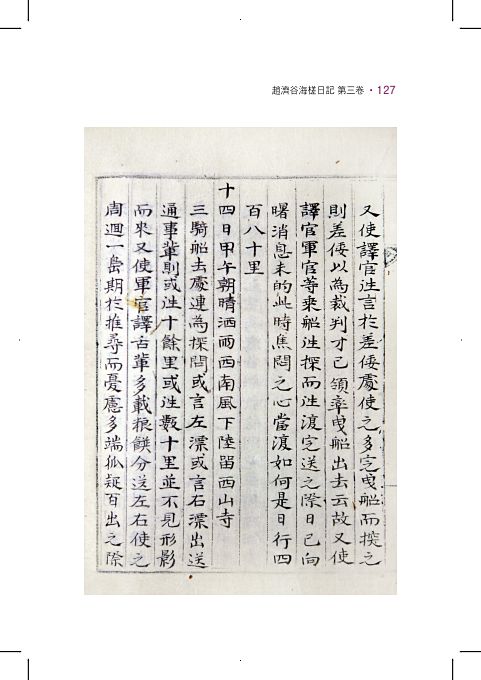 趙濟谷海槎日記 第三卷 · 127
又使譯官送言於差倭處使之多定曳船而探之
則差倭以為裁判才已領率曳船出去云故又使
譯官軍官等乘船送探而送渡定送之際日已向
曙消息未的此時焦悶之心當渡如何是日行四
百八十里
十四日甲午朝晴洒雨西南風下陸留西山寺
三騎船去處連為探問或言左漂或言右漂出送
通事輩則或往十餘里或往數十里並不見形影
而來又使軍官譯舌輩多載粮饌分送左右使之
周迴一島期於推尋而憂慮多端狐疑百出之際